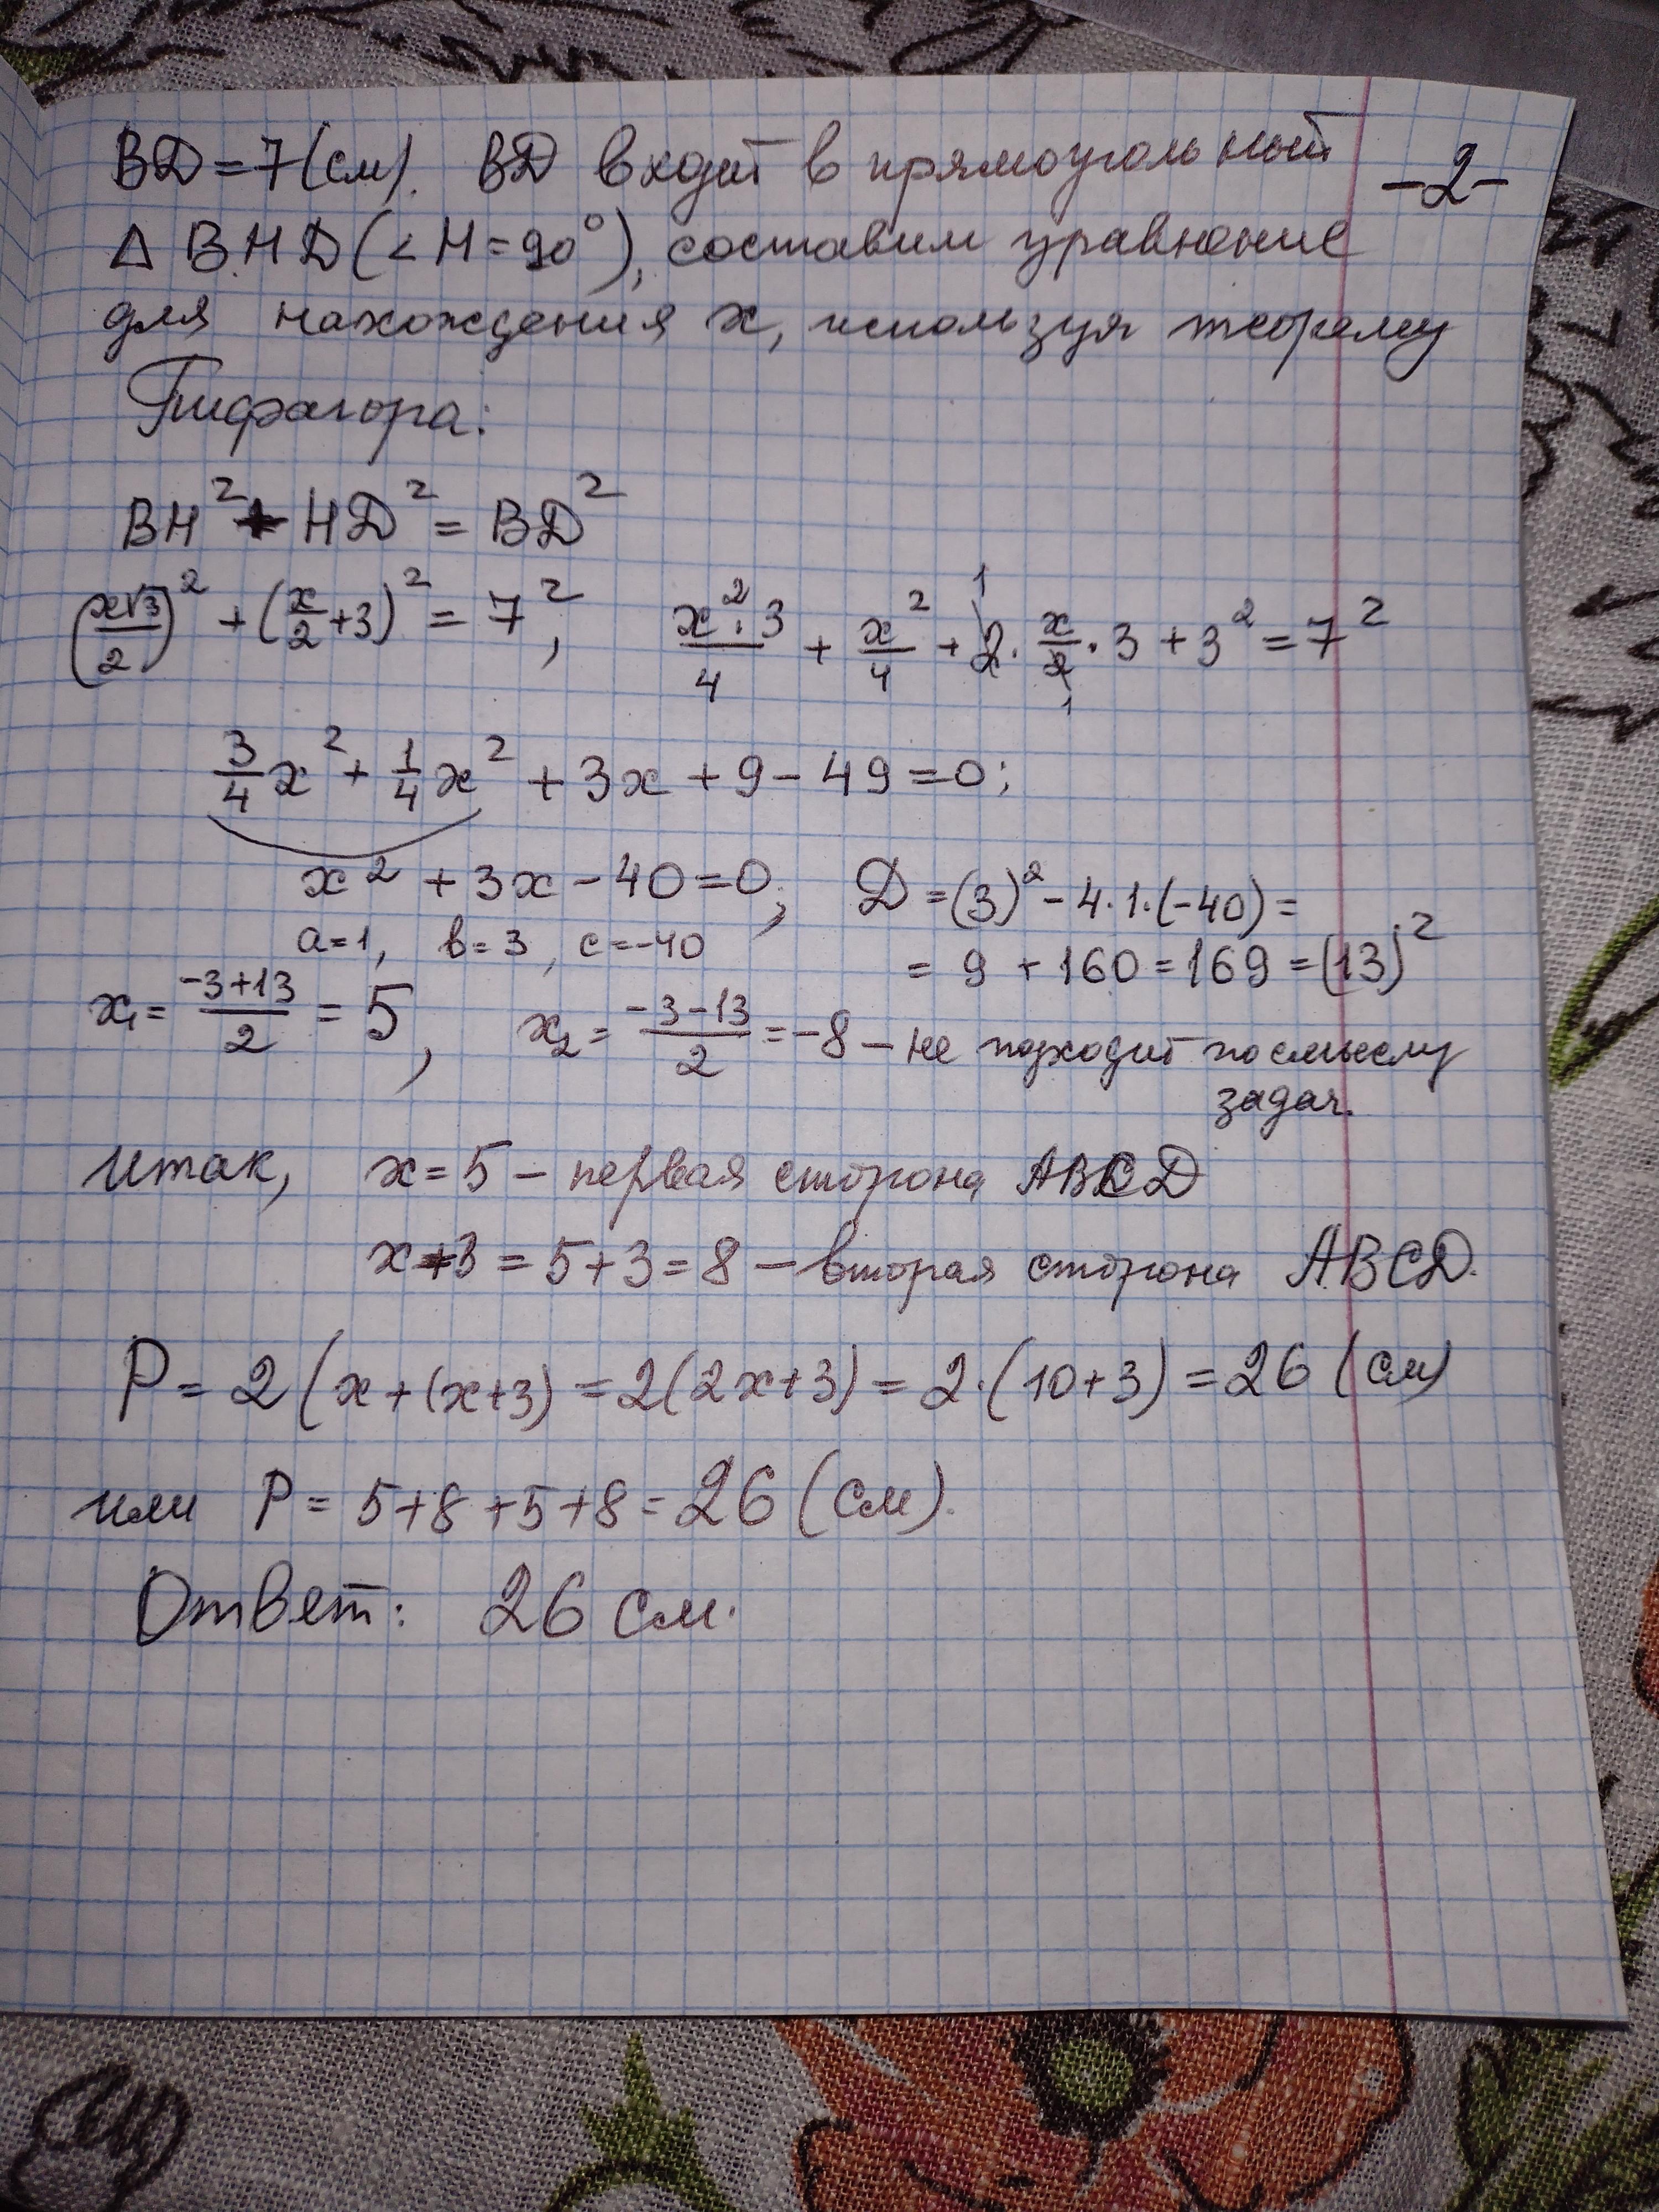 BD = 7 (см). BD входит в прямоугольный -2-
Δ BHD (∠H = 90°), составим уравнение
для нахождения x, используя теорему
Пифагора:
BH² + HD² = BD²
(x√3/2)² + (x/2 + 3)² = 7²; x²·3/4 + x²/4 + 2·x/2·3 + 3² = 7²
3/4 x² + 1/4 x² + 3x + 9 - 49 = 0;
x² + 3x - 40 = 0; D = (3)² - 4·1·(-40) =
a = 1, b = 3, c = -40 = 9 + 160 = 169 = (13)²
x₁ = -3+13/2 = 5, x₂ = -3-13/2 = -8 - не подходит по смыслу
задач.
итак, x = 5 - первая сторона ABCD
x + 3 = 5 + 3 = 8 - вторая сторона ABCD.
P = 2(x + (x+3) = 2(2x+3) = 2·(10+3) = 26 (см)
или P = 5+8+5+8 = 26 (см).
Ответ: 26 см.